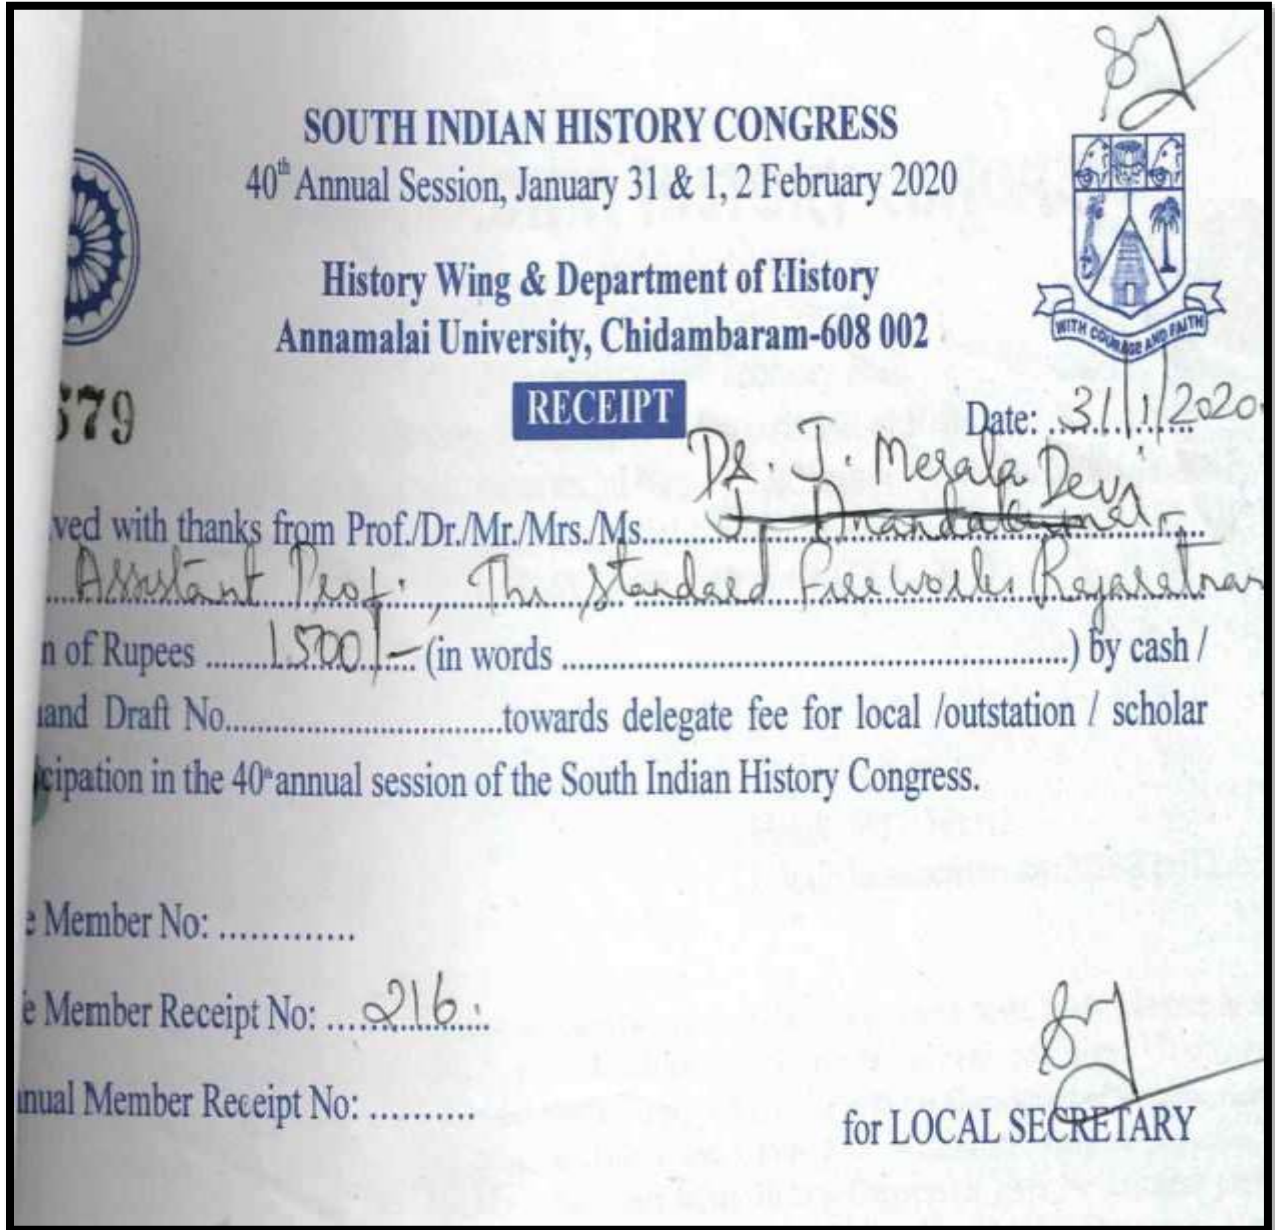 SOUTH INDIAN HISTORY CONGRESS
40th Annual Session, January 31 & 1, 2 February 2020
History Wing & Department of History
Annamalai University, Chidambaram-608 002
WITH COURAGE AND FAITH
579
RECEIPT
Date: 31/1/2020
Dr. J. Megala Devi
ved with thanks from Prof./Dr./Mr./Mrs./Ms. J. Anandakumar
Assistant Prof., The Standard Fireworks Rajaratnam
n of Rupees 1500/- (in words ) by cash /
and Draft No. towards delegate fee for local /outstation / scholar
cipation in the 40th annual session of the South Indian History Congress.
e Member No:
e Member Receipt No: 216.
nual Member Receipt No:
for LOCAL SECRETARY